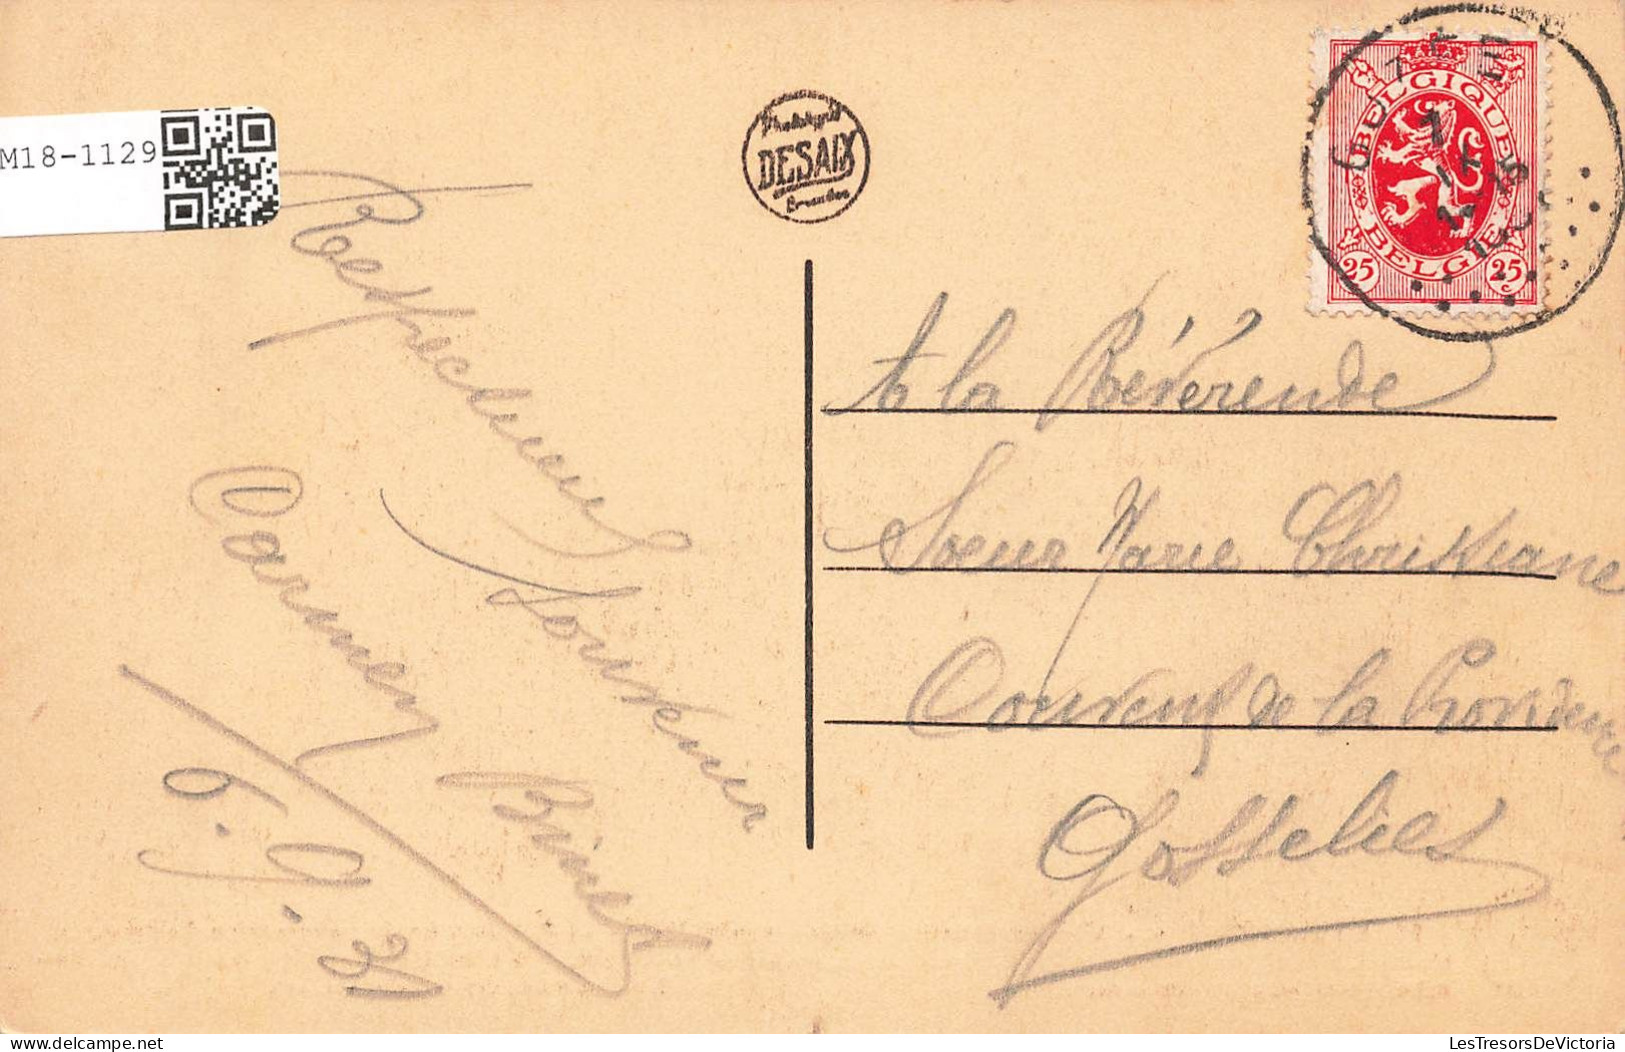 M18-1129
DESAIX
BELGIQUE
BELGIE
25
25
c
Respectueux
Souvenir
Carmen Binet
6.9.30
A la Révérende
Soeur Marie Christiane
Couvent de la Providence
Gosselies
delcampe.net
LesTresorsDeVictoria